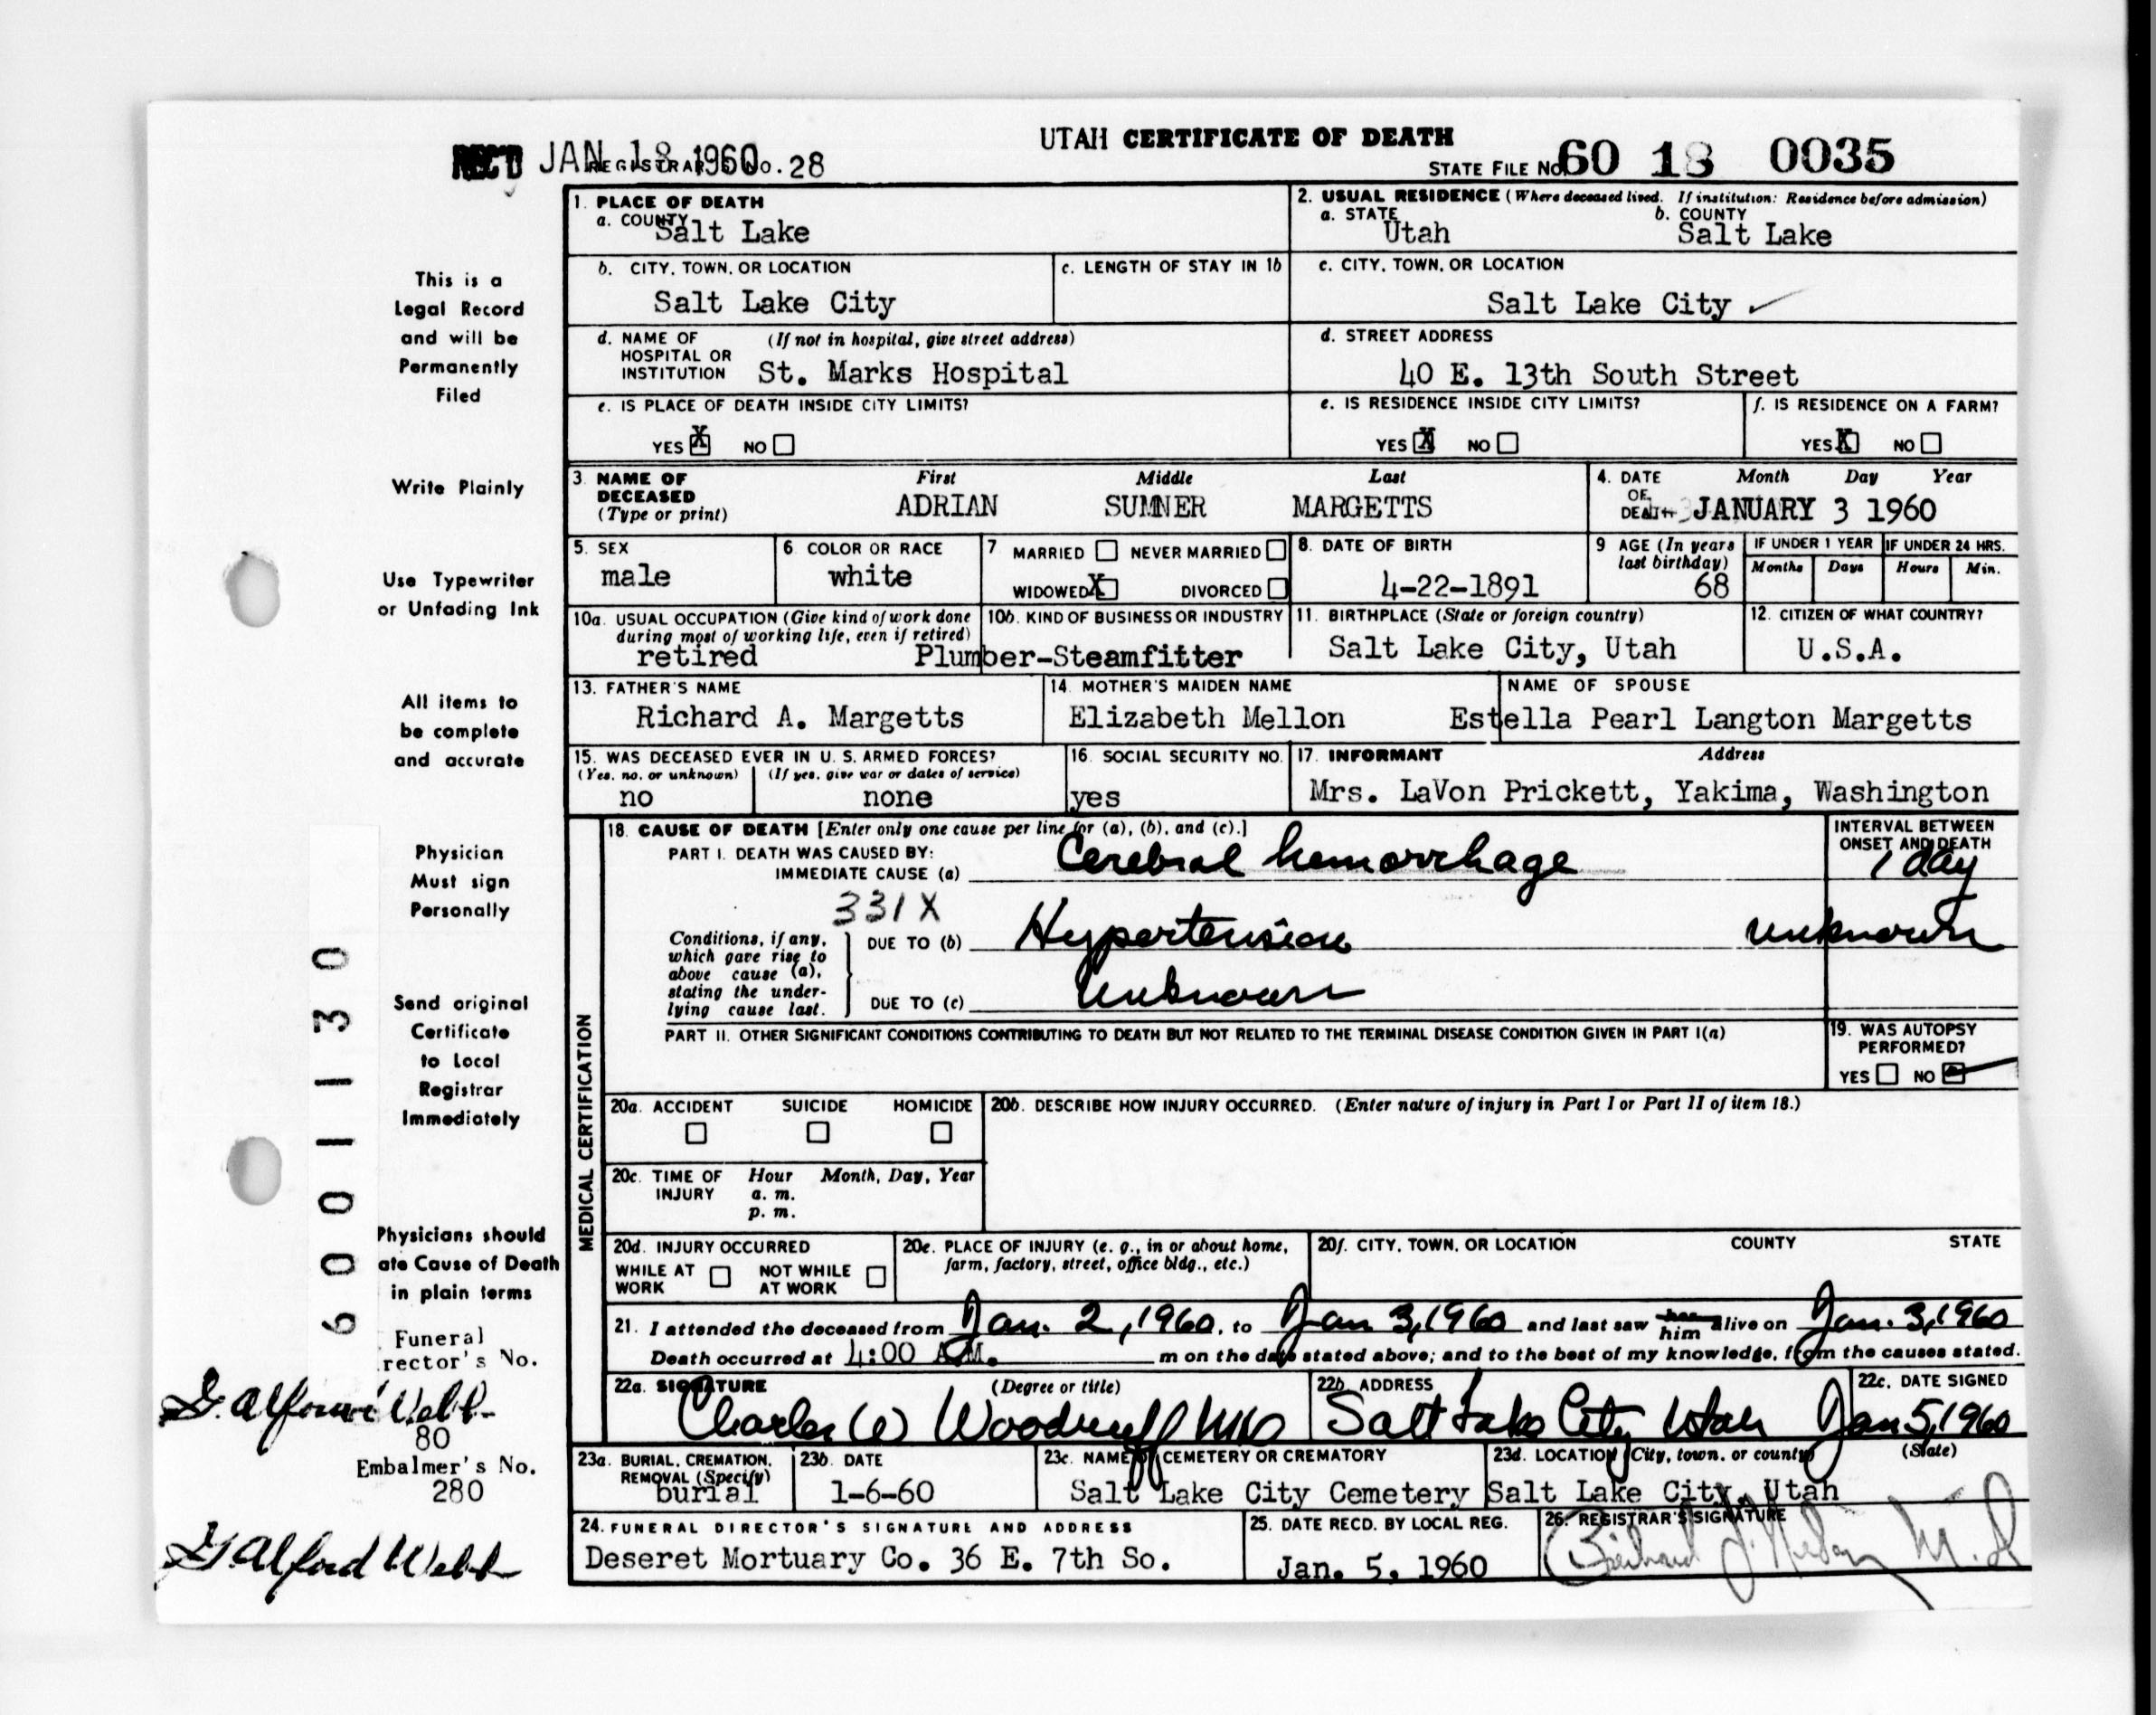 UTAH CERTIFICATE OF DEATH
REC'D JAN 18 1960 REGISTRAR'S No. 28
STATE FILE No. 60 18 0035
1. PLACE OF DEATH
a. COUNTY
Salt Lake
2. USUAL RESIDENCE (Where deceased lived. If institution: Residence before admission)
a. STATE b. COUNTY
Utah Salt Lake
b. CITY, TOWN, OR LOCATION
Salt Lake City
c. LENGTH OF STAY IN 1b
c. CITY, TOWN, OR LOCATION
Salt Lake City
d. NAME OF (If not in hospital, give street address)
HOSPITAL OR
INSTITUTION St. Marks Hospital
d. STREET ADDRESS
40 E. 13th South Street
e. IS PLACE OF DEATH INSIDE CITY LIMITS?
YES X NO
e. IS RESIDENCE INSIDE CITY LIMITS?
YES X NO
f. IS RESIDENCE ON A FARM?
YES X NO
3. NAME OF First Middle Last
DECEASED
(Type or print) ADRIAN SUMNER MARGETTS
4. DATE Month Day Year
OF
DEATH JANUARY 3 1960
5. SEX
male
6. COLOR OR RACE
white
7 MARRIED NEVER MARRIED
WIDOWED X DIVORCED
8. DATE OF BIRTH
4-22-1891
9 AGE (In years
last birthday)
68
IF UNDER 1 YEAR IF UNDER 24 HRS.
Months Days Hours Min.
10a. USUAL OCCUPATION (Give kind of work done
during most of working life, even if retired)
10b. KIND OF BUSINESS OR INDUSTRY
retired Plumber-Steamfitter
11. BIRTHPLACE (State or foreign country)
Salt Lake City, Utah
12. CITIZEN OF WHAT COUNTRY?
U.S.A.
13. FATHER'S NAME
Richard A. Margetts
14. MOTHER'S MAIDEN NAME
Elizabeth Mellon
NAME OF SPOUSE
Estella Pearl Langton Margetts
15. WAS DECEASED EVER IN U. S. ARMED FORCES?
(Yes, no, or unknown) (If yes, give war or dates of service)
no none
16. SOCIAL SECURITY NO.
yes
17. INFORMANT Address
Mrs. LaVon Prickett, Yakima, Washington
MEDICAL CERTIFICATION
18. CAUSE OF DEATH [Enter only one cause per line for (a), (b), and (c).]
PART I. DEATH WAS CAUSED BY:
IMMEDIATE CAUSE (a) Cerebral hemorrhage
INTERVAL BETWEEN
ONSET AND DEATH
1 day
331X
Conditions, if any,
which gave rise to
above cause (a),
stating the under-
lying cause last.
DUE TO (b) Hypertension unknown
DUE TO (c) Unknown
PART II. OTHER SIGNIFICANT CONDITIONS CONTRIBUTING TO DEATH BUT NOT RELATED TO THE TERMINAL DISEASE CONDITION GIVEN IN PART I(a)
19. WAS AUTOPSY
PERFORMED?
YES NO
20a. ACCIDENT SUICIDE HOMICIDE
20b. DESCRIBE HOW INJURY OCCURRED. (Enter nature of injury in Part I or Part II of item 18.)
20c. TIME OF Hour Month, Day, Year
INJURY a. m.
p. m.
20d. INJURY OCCURRED
WHILE AT NOT WHILE
WORK AT WORK
20e. PLACE OF INJURY (e. g., in or about home,
farm, factory, street, office bldg., etc.)
20f. CITY, TOWN, OR LOCATION COUNTY STATE
21. I attended the deceased from Jan. 2, 1960, to Jan 3, 1960 and last saw her him alive on Jan. 3, 1960
Death occurred at 4:00 A.M. m on the date stated above; and to the best of my knowledge, from the causes stated.
22a. SIGNATURE (Degree or title)
Charles W Woodruff MD
22b. ADDRESS
Salt Lake City Utah
22c. DATE SIGNED
Jan 5, 1960
23a. BURIAL, CREMATION,
REMOVAL (Specify)
burial
23b. DATE
1-6-60
23c. NAME OF CEMETERY OR CREMATORY
Salt Lake City Cemetery
23d. LOCATION (City, town, or county) (State)
Salt Lake City, Utah
24. FUNERAL DIRECTOR'S SIGNATURE AND ADDRESS
Deseret Mortuary Co. 36 E. 7th So.
25. DATE RECD. BY LOCAL REG.
Jan. 5. 1960
26. REGISTRAR'S SIGNATURE
This is a
Legal Record
and will be
Permanently
Filed
Write Plainly
Use Typewriter
or Unfading Ink
All items to
be complete
and accurate
Physician
Must sign
Personally
Send original
Certificate
to Local
Registrar
Immediately
Physicians should
ate Cause of Death
in plain terms
6001130
Funeral
rector's No.
80
Embalmer's No.
280
G Alford Webb